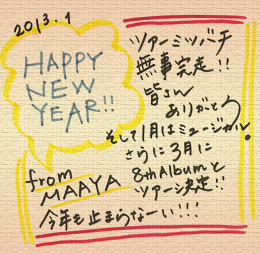 2013.1
HAPPY
NEW
YEAR!!
ツアーミツバチ
無事完走!!
皆さん
ありがとう
そして1月はミュージカル。
さらに3月に
8th Albumと
ツアー決定!!
from
MAAYA
今年も止まらなーい!!!